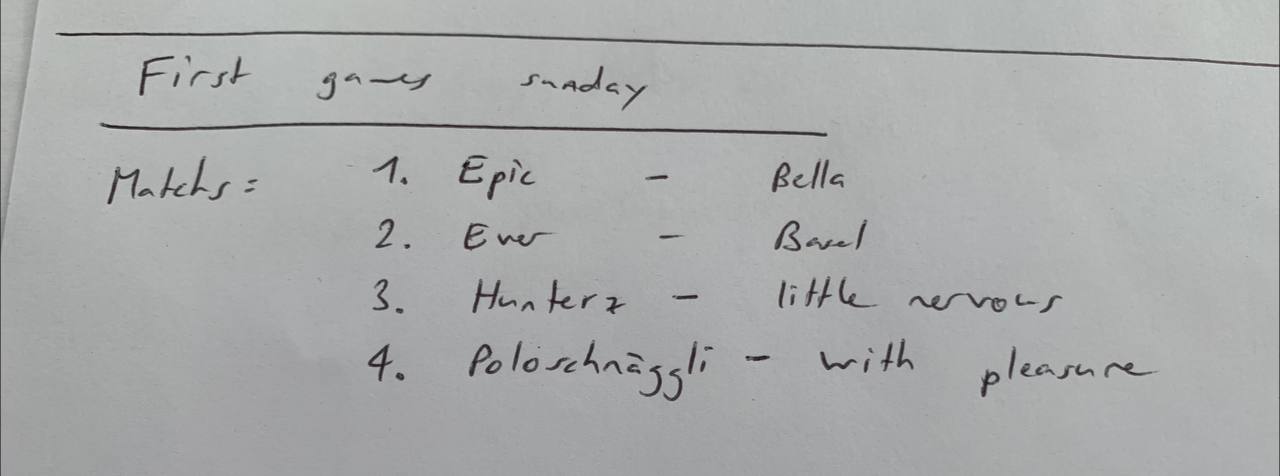 First games sunday
Matchs: 1. Epic - Bella
2. Ever - Basel
3. Hunterz - little nervous
4. Poloschnäggli - with pleasure